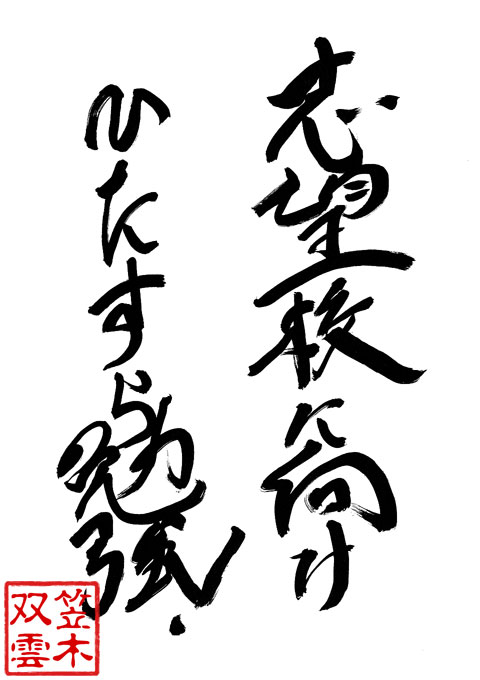 志望校に向け
ひたすら勉強
笠木
双雲